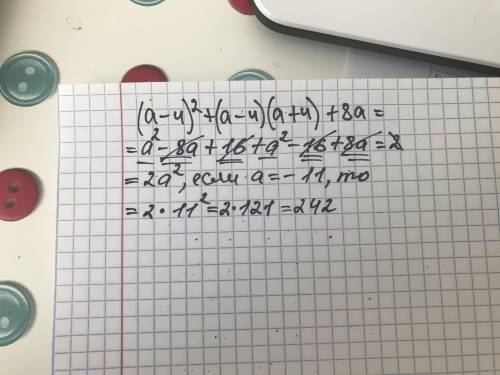 (a-4)²+(a-4)(a+4)+8a=
=a²-8a+16+a²-16+8a=
=2a², если a=-11, то
=2·11²=2·121=242